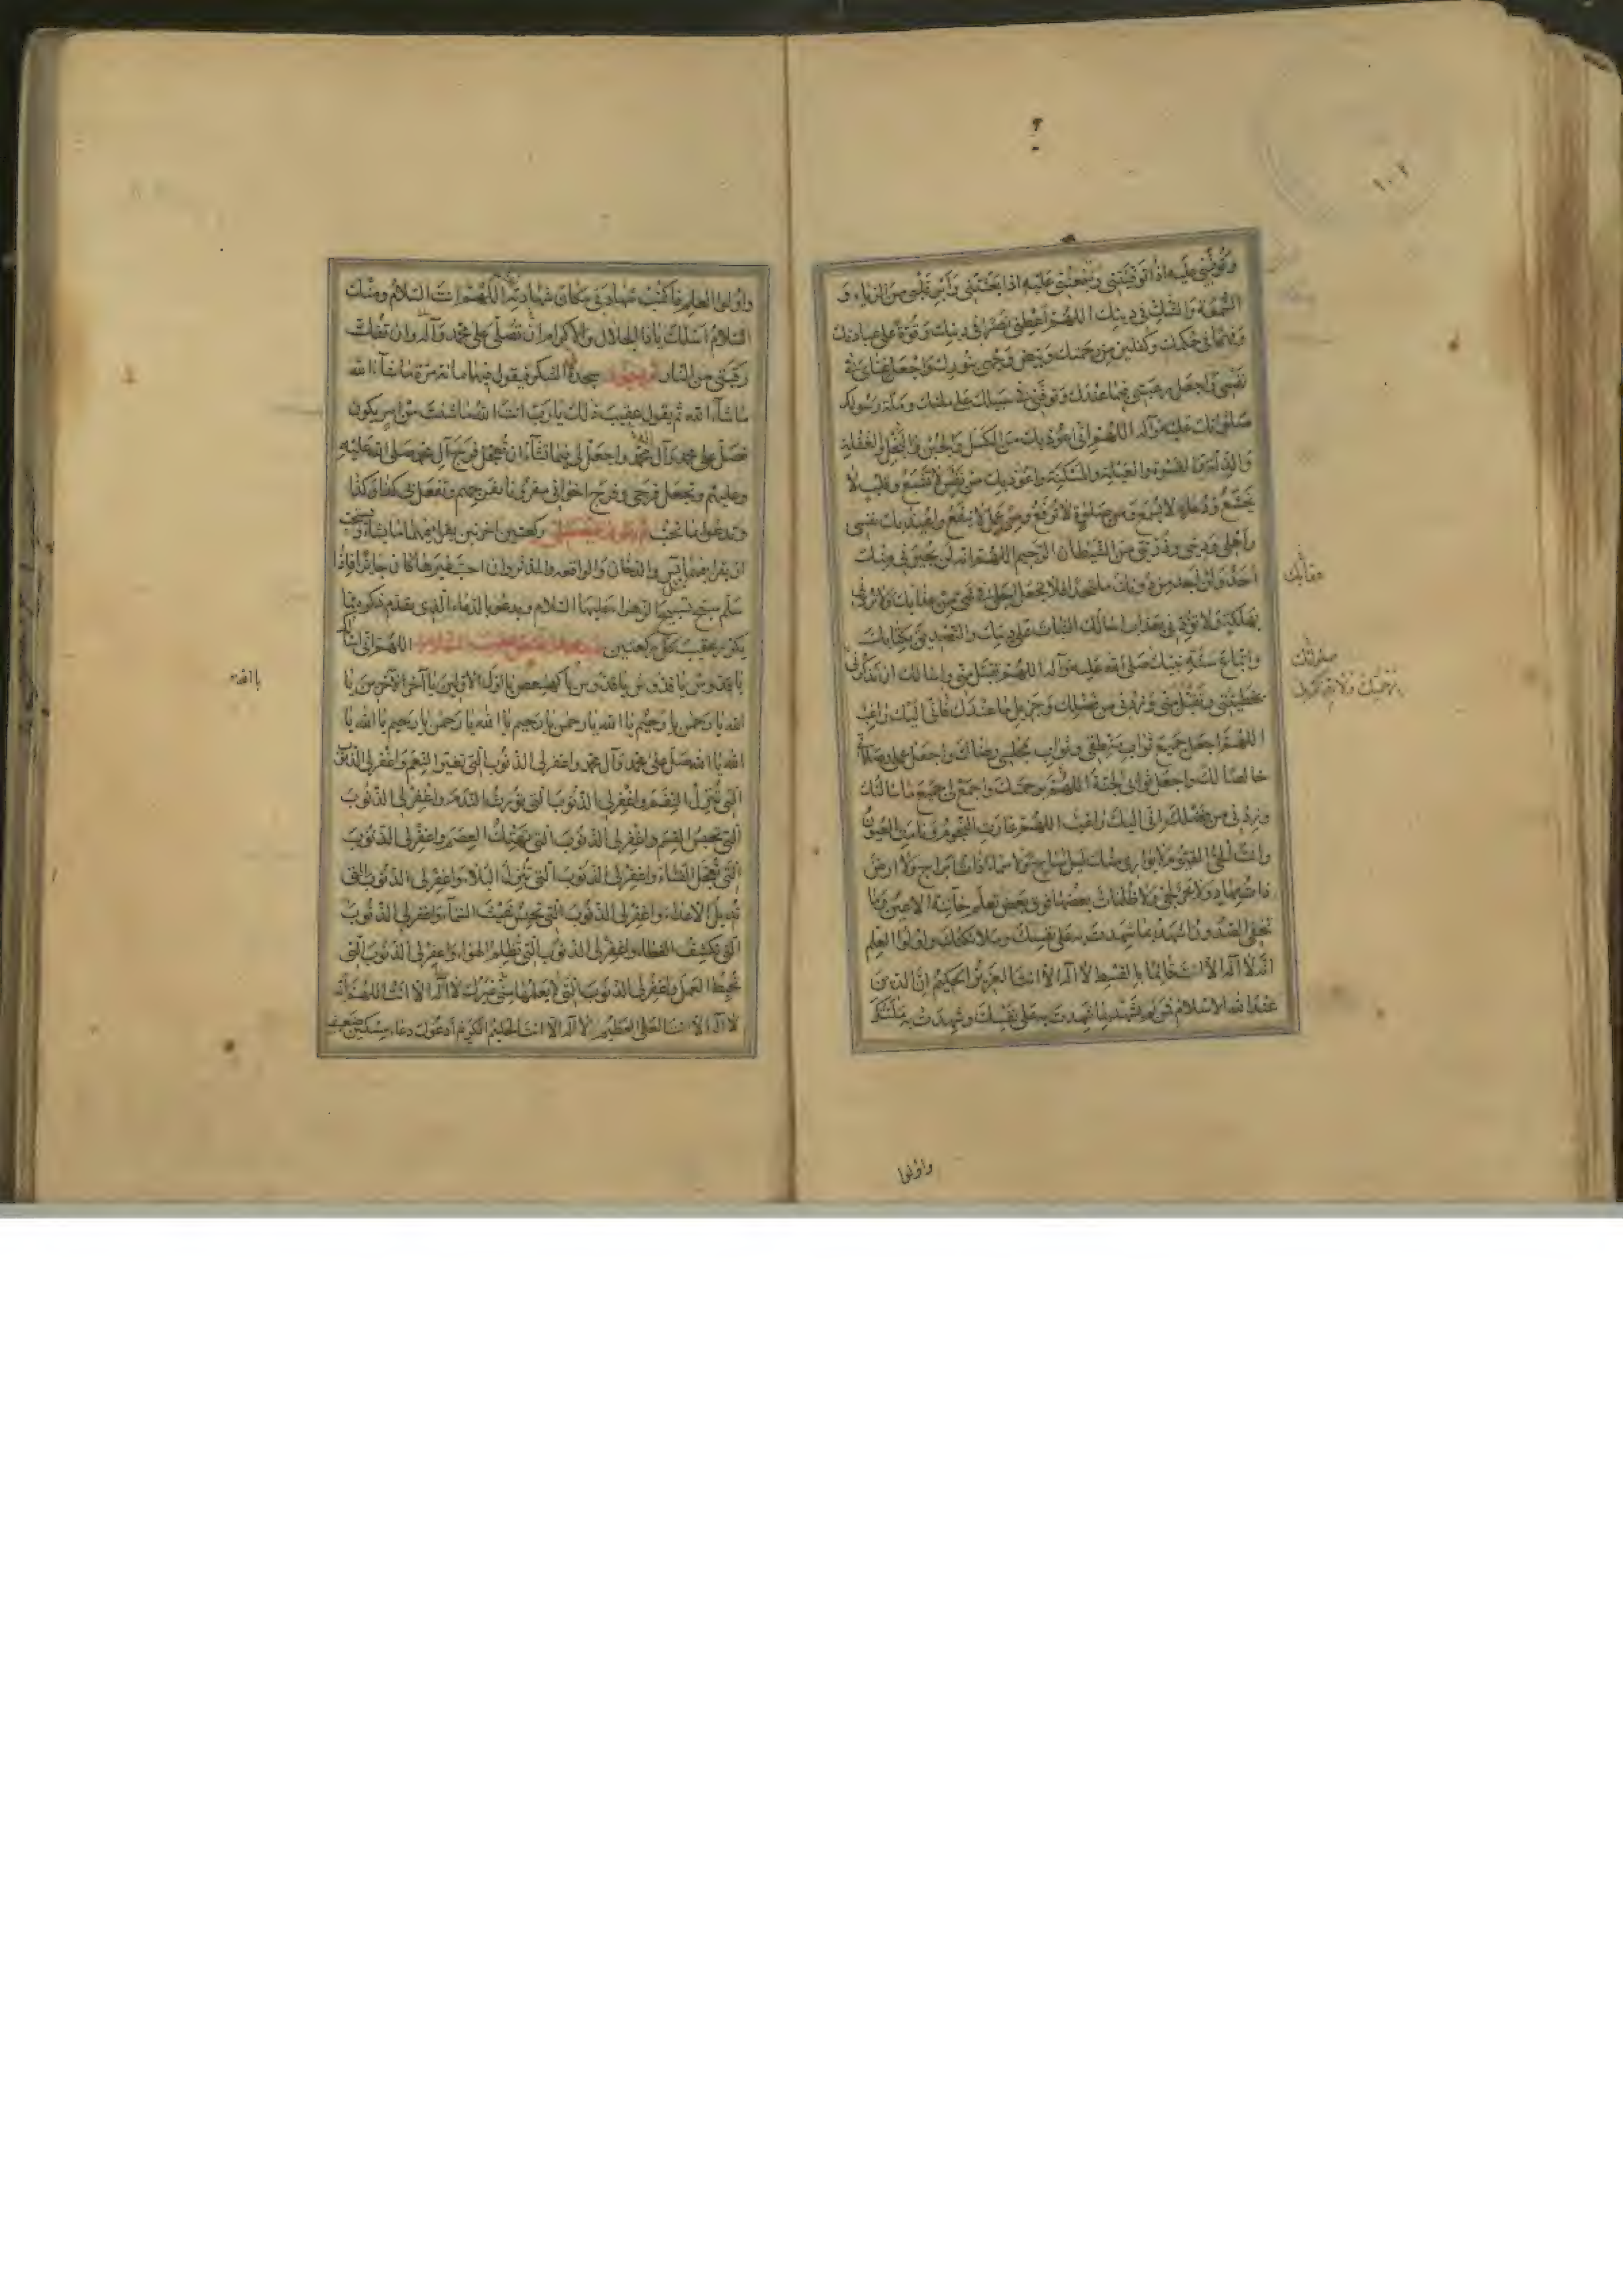 ١٠٢
وتوفني عليه اذا توفيتني وتبعثني عليه اذا بعثتني وابرأ قلبي من الرياء و
السمعة والشك في دينك اللهم اعطني نصرا في دينك وقوة على عبادتك
وفهما في حكمك وكفلين من رحمتك وبيض وجهي بنورك واجعل غناي في
نفسي واجعل رغبتي فيما عندك وتوفني في سبيلك على ملتك وملة رسولك
صلواتك عليه وآله اللهم اني اعوذ بك من الكسل والجبن والبخل والغفلة
والذلة والقسوة والعيلة والمسكنة واعوذ بك من نفس لا تشبع وقلب لا
يخشع ودعاء لا يسمع ومن صلوة لا ترفع ومن عمل لا ينفع واعيذ بك نفسي
واهلي وديني وذريتي من الشيطان الرجيم اللهم انه لن يجيرني منك
احد ولن اجد من دونك ملتحدا فلا تجعل اجلي في شيء من عذابك ولا تردني
بهلكة ولا تردني بعذاب اسالك الثبات على دينك والتصديق بكتابك
واتباع سنة نبيك صلى الله عليه وآله اللهم تقبل مني واسالك ان تذكرني
بخطيئتي وتقبل مني وتزيدني من فضلك وجزيل ما عندك فاني اليك راغب
اللهم اجعل جميع ثواب منطقي وثواب مجلسي رضاك واجعل عملي وصلاتي
خالصا لك واجعل ثوابي الجنة اللهم برحمتك واجمع لي جميع ما سالتك
وزدني من فضلك اني اليك راغب اللهم غارت النجوم ونامت العيون
وانت الحي القيوم لا يواري منك ليل ساج ولا سماء ذات ابراج ولا ارض
ذات مهاد ولا بحر لجي ولا ظلمات بعضها فوق بعض تعلم خائنة الاعين وما
تخفي الصدور اشهد بما شهدت به على نفسك وملائكتك واولوا العلم
انه لا اله الا انت قائما بالقسط لا اله الا انت العزيز الحكيم ان الدين
عند الله الاسلام فمن لم يشهد بما شهدت به على نفسك وشهدت به ملائكتك
واولوا
واولوا العلم فاكتب شهادتي مكان شهادته اللهم انت السلام ومنك
السلام اسئلك يا ذا الجلال والاكرام ان تصلي على محمد وآله وان تفك
رقبتي من النار ثم يسجد سجدة الشكر فيقول فيها مائة مرة ما شاء الله
ما شاء الله ثم يقول عقيب ذلك يا رب انت الله ما شئت من امر يكون
فصل على محمد وآل محمد واجعل لي فيما تشاء ان تعجل فرج آل محمد صلى الله عليه
وعليهم وتجعل فرجي وفرج اخواني مقرونا بفرجهم وتفعل بي كذا وكذا
وتدعوا بما تحب ركعتين اخرتين يقرا فيهما ما يشاء ويستحب
ان يقرا فيهما يس والدخان والواقعه والمدثر وان احب غيرها كان جائزا فاذا
سلم سبح تسبيح الزهراء عليها السلام ويدعو بالدعاء الذي تقدم ذكره مما
يكرر عقيب كل ركعتين اللهم اني اسالك
يا قدوس يا قدوس يا قدوس يا كهيعص يا اول الاولين يا آخر الآخرين يا
الله يا رحمن يا رحيم يا الله يا رحمن يا رحيم يا الله يا رحمن يا رحيم يا الله يا
الله يا الله صل على محمد وآل محمد واغفر لي الذنوب التي تغير النعم واغفر لي الذنوب
التي تنزل النقم واغفر لي الذنوب التي تورث الندم واغفر لي الذنوب
التي تحبس القسم واغفر لي الذنوب التي تهتك العصم واغفر لي الذنوب
التي تعجل الفناء واغفر لي الذنوب التي تنزل البلاء واغفر لي الذنوب التي
تديل الاعداء واغفر لي الذنوب التي تحبس غيث السماء واغفر لي الذنوب
التي تكشف الغطاء واغفر لي الذنوب التي تظلم الهواء واغفر لي الذنوب التي
تحبط العمل واغفر لي الذنوب التي لا يعلمها مني غيرك لا اله الا انت اللهم انه
لا اله الا انت العلي العظيم لا اله الا انت الحليم الكريم ادعوك دعاء مسكين ضعيف
يا الله